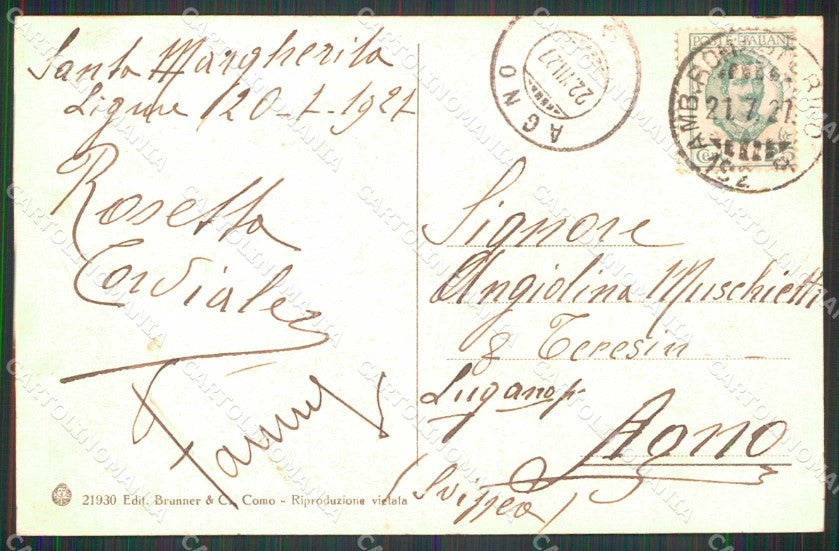 Santa Margherita
Ligure 120-7-1927
Rosetta
Cordiale
Fanny
21930 Edit. Brunner & C. Como - Riproduzione vietata
AGNO
22.VII.27
POSTE ITALIANE
AMB.
21.7.27
Signore
Angiolina Muschietti
& Teresin
Lugano p.
Agno
(Svizzera)
CARTOLINOMANIA